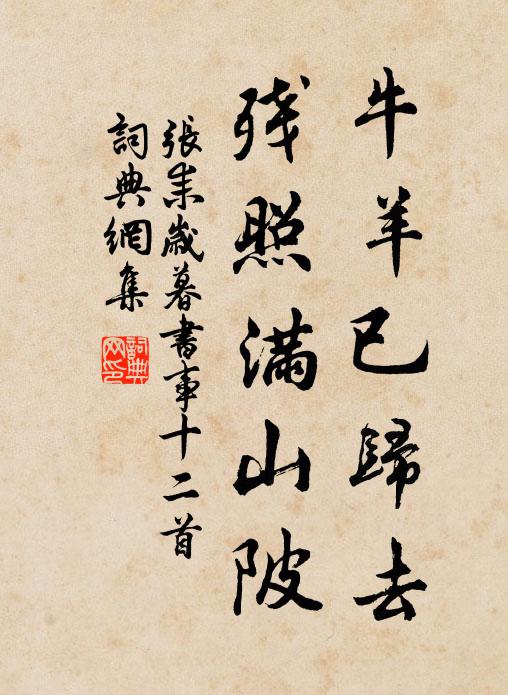 牛羊已歸去
残照滿山陂
張耒歲暮書事十二首
詞典網集
詞典网印